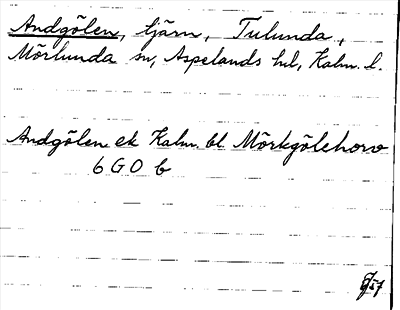 Andgölen, tjärn, Tulunda,
Mörlunda sn, Aspelands hd, Kalm. l.
Andgölen ek Kalm. bl. Mörkgölehorv
6 G 0 b